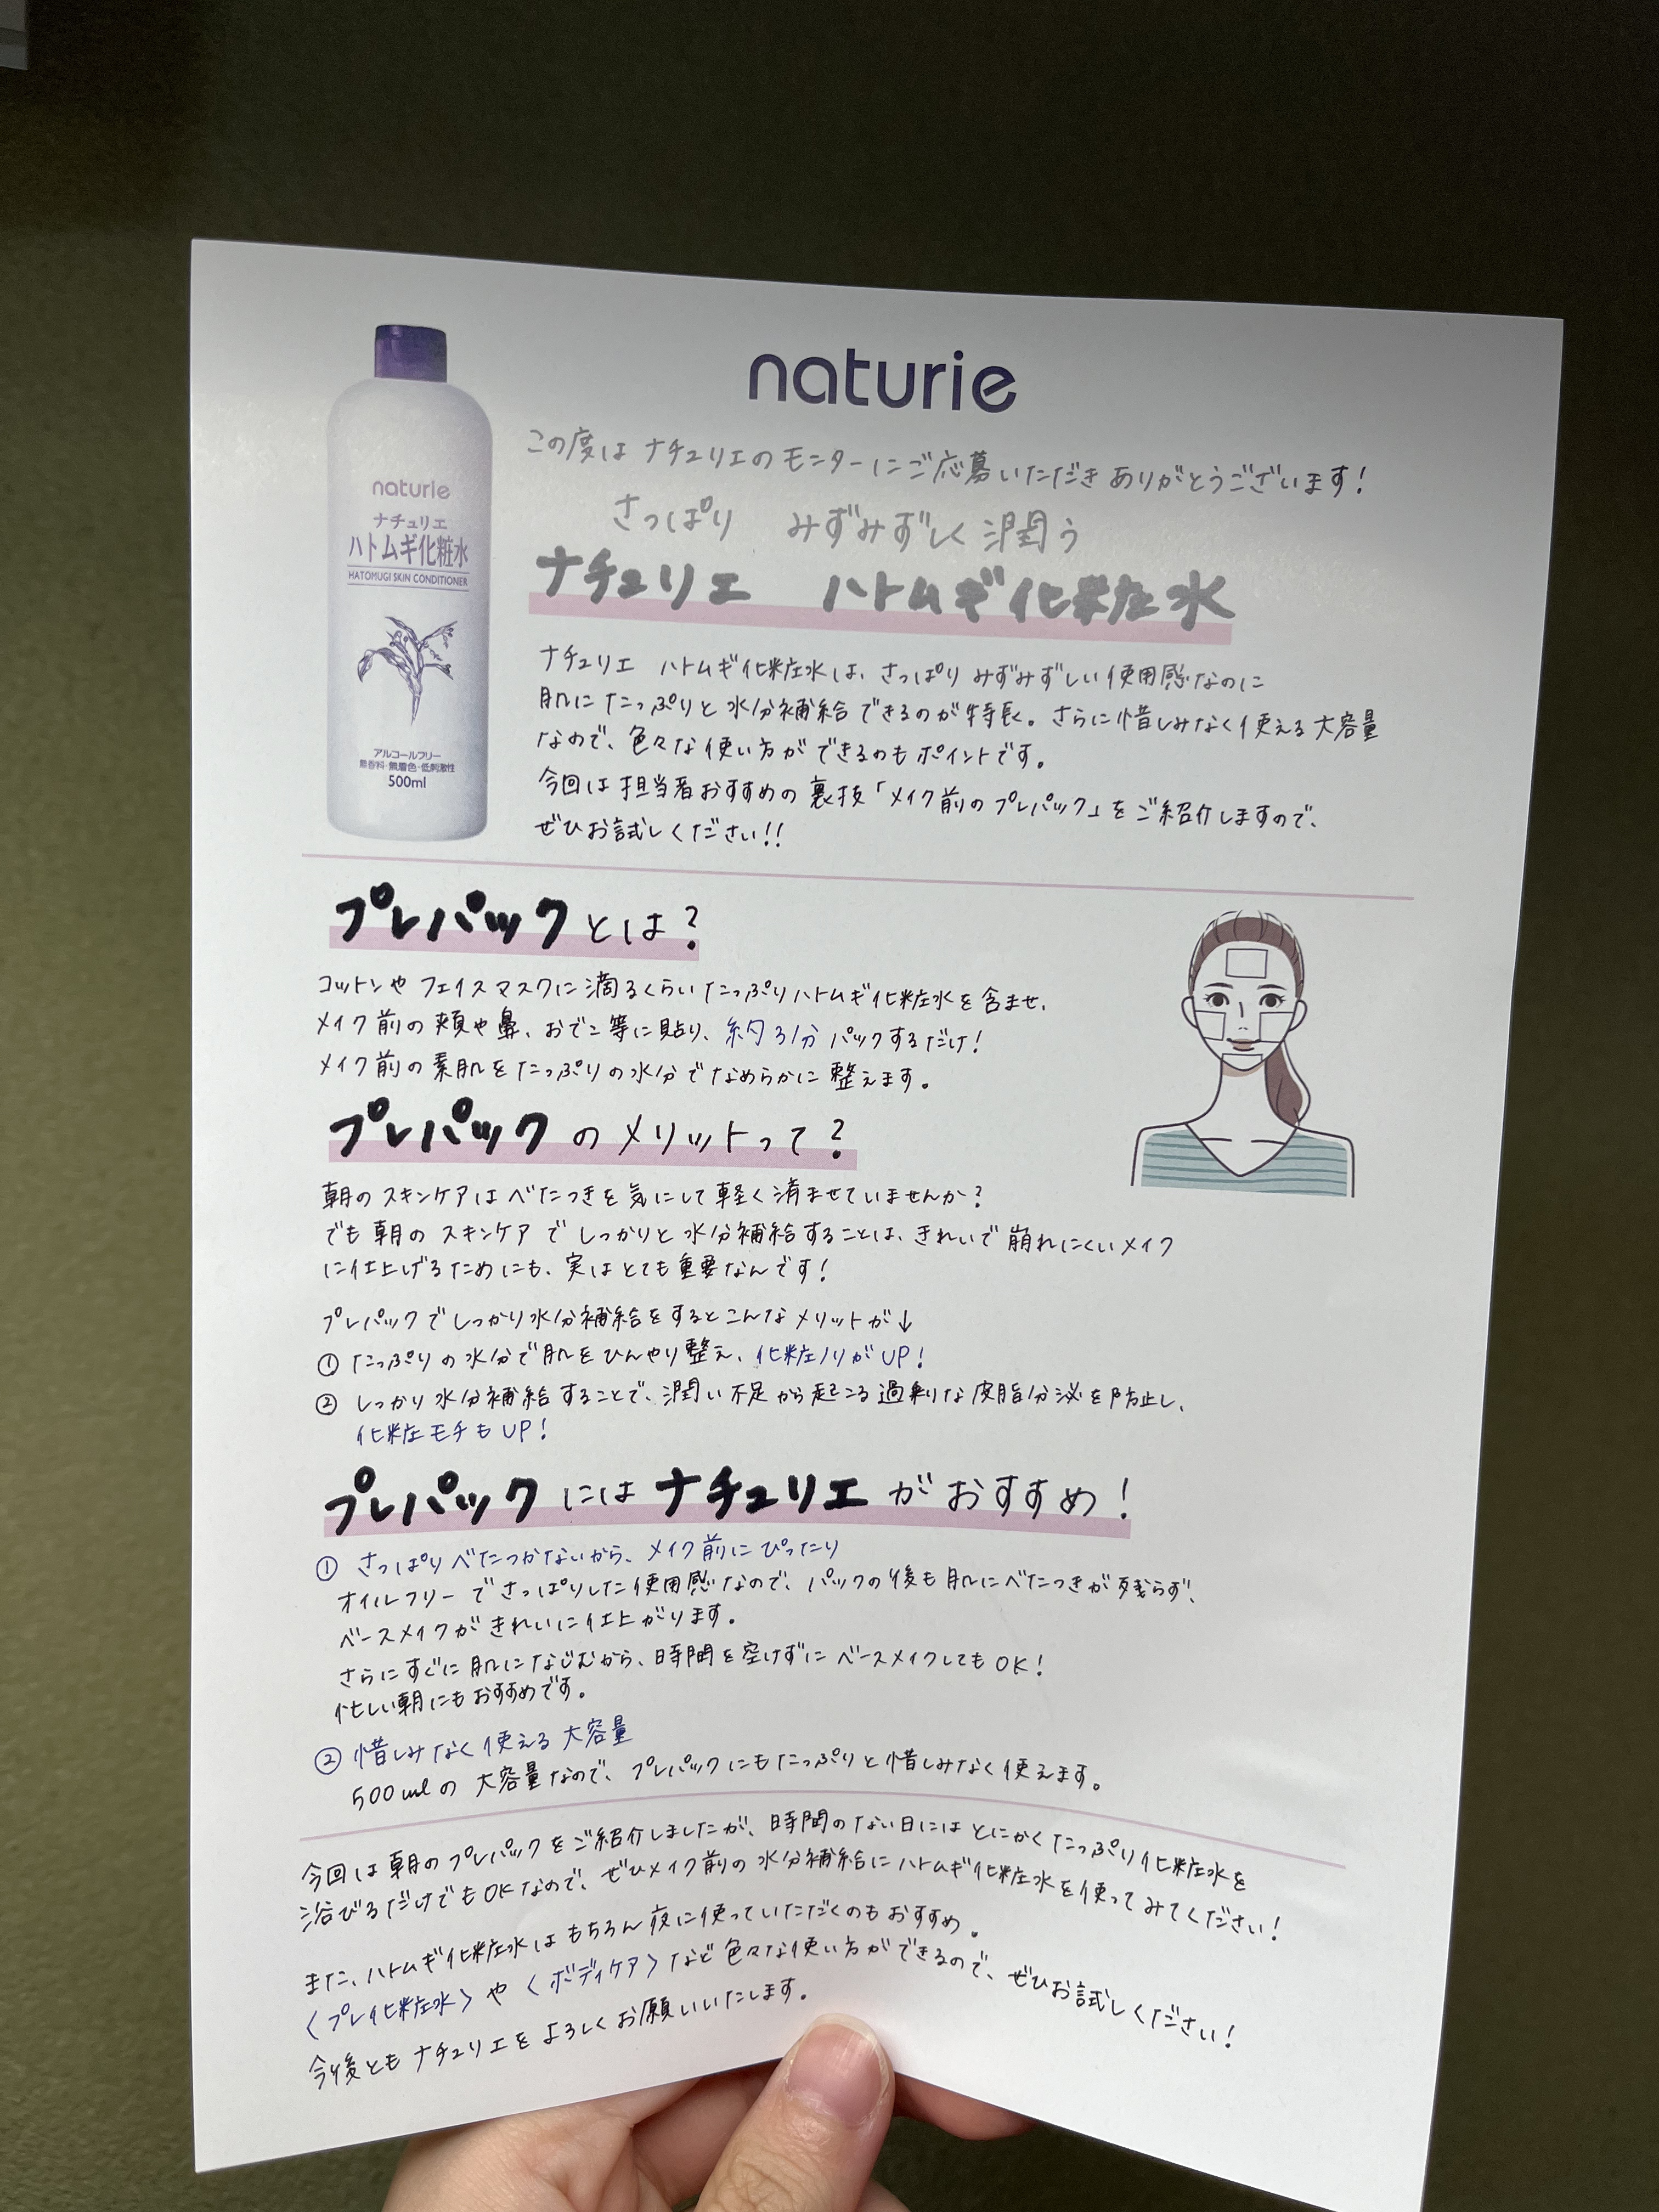 naturie
この度はナチュリエのモニターにご応募いただきありがとうございます!
さっぱり みずみずしく潤う
ナチュリエ ハトムギ化粧水
naturie
ナチュリエ
ハトムギ化粧水
HATOMUGI SKIN CONDITIONER
アルコールフリー
無香料・無着色・低刺激性
500ml
ナチュリエ ハトムギ化粧水は、さっぱりみずみずしい使用感なのに
肌にたっぷりと水分補給できるのが特長。さらに惜しみなく使える大容量
なので、色々な使い方ができるのもポイントです。
今回は担当者おすすめの裏技「メイク前のプレパック」をご紹介しますので、
ぜひお試しください!!
プレパックとは?
コットンやフェイスマスクに滴るくらいたっぷりハトムギ化粧水を含ませ、
メイク前の頬や鼻、おでこ等に貼り、約3分パックするだけ!
メイク前の素肌をたっぷりの水分でなめらかに整えます。
プレパックのメリットって?
朝のスキンケアはべたつきを気にして軽く済ませていませんか?
でも朝のスキンケアでしっかりと水分補給することは、きれいで崩れにくいメイク
に仕上げるためにも、実はとても重要なんです!
プレパックでしっかり水分補給をするとこんなメリットが↓
① たっぷりの水分で肌をひんやり整え、化粧ノリがUP!
② しっかり水分補給することで、潤い不足から起こる過剰な皮脂分泌を防止し、
化粧モチもUP!
プレパックにはナチュリエがおすすめ!
① さっぱりべたつかないから、メイク前にぴったり
オイルフリーでさっぱりした使用感なので、パックの後も肌にべたつきが残らず、
ベースメイクがきれいに仕上がります。
さらにすぐに肌になじむから、時間を空けずにベースメイクしてもOK!
忙しい朝にもおすすめです。
② 惜しみなく使える大容量
500mlの大容量なので、プレパックにもたっぷりと惜しみなく使えます。
今回は朝のプレパックをご紹介しましたが、時間のない日にはとにかくたっぷり化粧水を
浴びるだけでもOKなので、ぜひメイク前の水分補給にハトムギ化粧水を使ってみてください!
また、ハトムギ化粧水はもちろん夜に使っていただくのもおすすめ。
〈プレ化粧水〉や〈ボディケア〉など色々な使い方ができるので、ぜひお試しください!
今後ともナチュリエをよろしくお願いいたします。